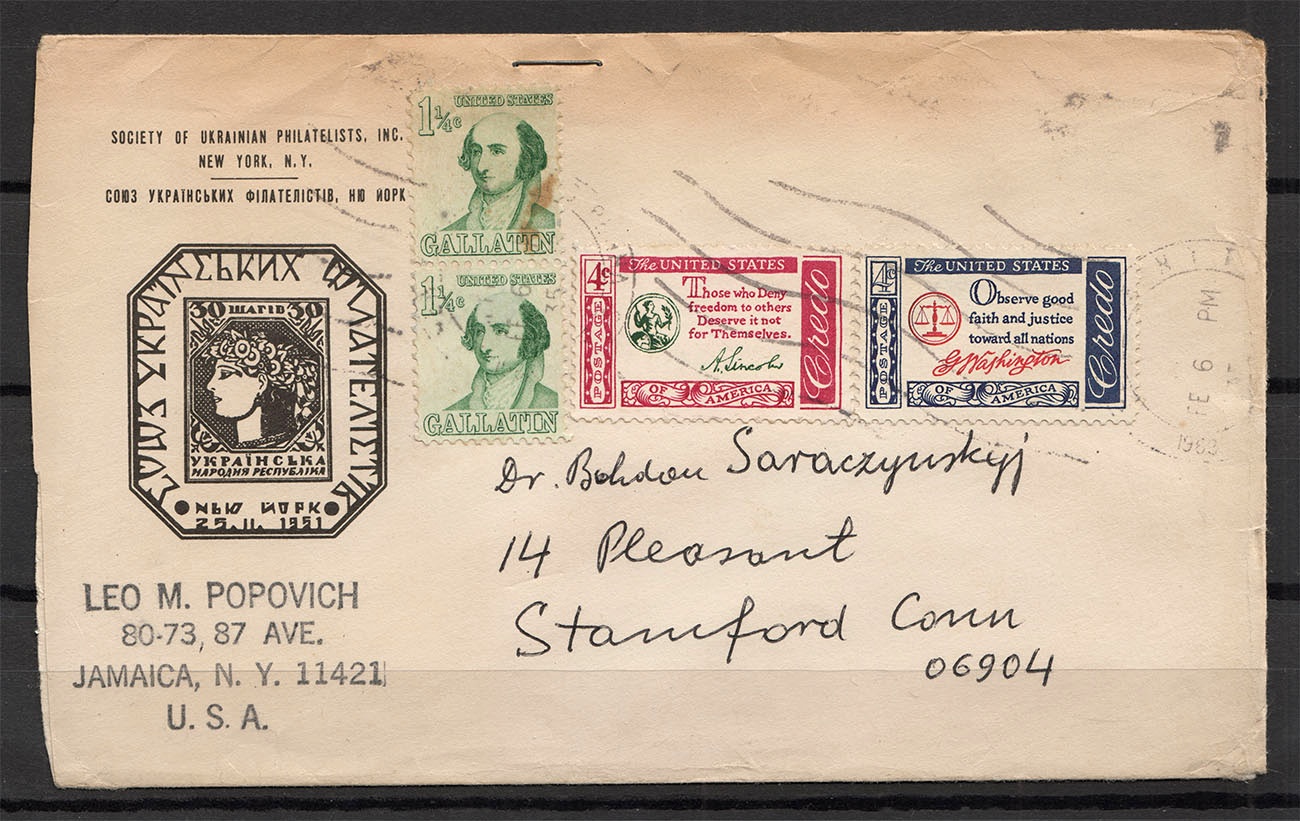 SOCIETY OF UKRAINIAN PHILATELISTS, INC.
NEW YORK, N.Y.
СОЮЗ УКРАЇНСЬКИХ ФІЛАТЕЛІСТІВ, НЮ ЙОРК
СОЮЗ УКРАЇНСЬКИХ ФІЛАТЕЛІСТІВ
30 ШАГІВ 30
УКРАЇНСЬКА
НАРОДНЯ РЕСПУБЛІКА
НЬЮ ЙОРК
25. II. 1951
LEO M. POPOVICH
80-73, 87 AVE.
JAMAICA, N. Y. 11421
U. S. A.
1¼c UNITED STATES
GALLATIN
1¼c UNITED STATES
GALLATIN
4c The UNITED STATES
POSTAGE
Those who Deny
freedom to others
Deserve it not
for Themselves.
A. Lincoln
OF AMERICA
Credo
4c The UNITED STATES
POSTAGE
Observe good
faith and justice
toward all nations
G. Washington
OF AMERICA
Credo
PM
FE 6
Dr. Bohdan Saraczynskyj
14 Pleasant
Stamford Conn
06904